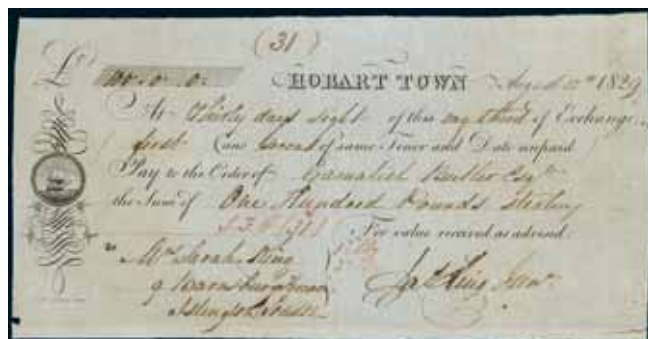 (31)
100.0.0. HOBART TOWN August 1829
At Thirty days sight of this my third of Exchange
first (and second of same Tenor and Date unpaid
Pay to the Order of Gamaliel Butler Esqre
the Sum of One Hundred Pounds sterling
For value received as advised.
Mrs Sarah King
9 Barnsbury
Islington London
King Junr